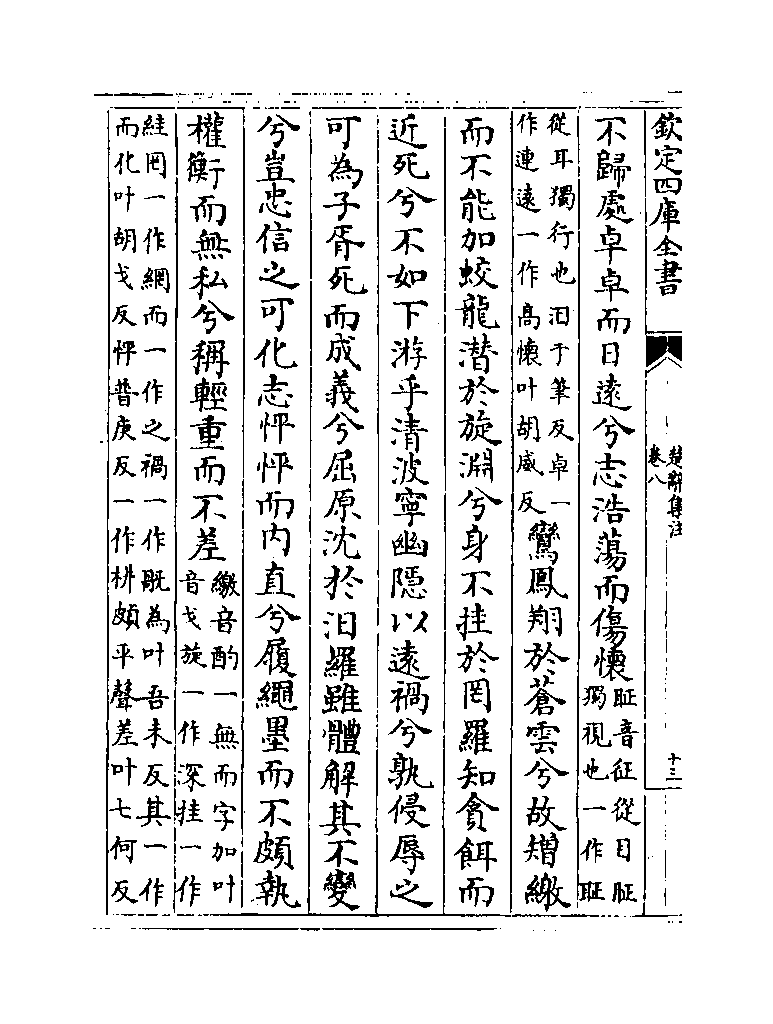 欽定四庫全書
楚辭集注
卷八
十三
不歸處卓卓而日遠兮志浩蕩而傷懷
眐音征從目眐
獨視也一作眐
從耳獨行也汩于筆反卓一
作連遠一作高懷叶胡威反
鸞鳳翔於蒼雲兮故矰繳
而不能加蛟龍潛於旋淵兮身不挂於罔羅知貪餌而
近死兮不如下游乎清波寧幽隱以遠禍兮孰侵辱之
可為子胥死而成義兮屈原沈於汨羅雖體解其不變
兮豈忠信之可化志怦怦而內直兮履繩墨而不頗執
權衡而無私兮稱輕重而不差
繳音酌一無而字加叶
音戈旋一作深挂一作
絓罔一作網而一作之禍一作旤為叶吾禾反其一作
而化叶胡戈反怦普庚反一作枅頗平聲差叶七何反